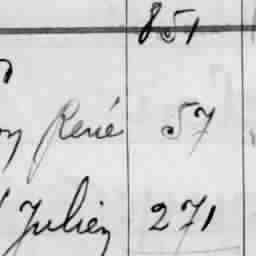 851
René 57
Julien 271